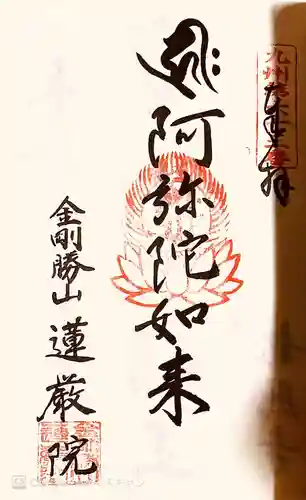 奉拝
九州
阿弥陀如来
金剛勝山
蓮厳院